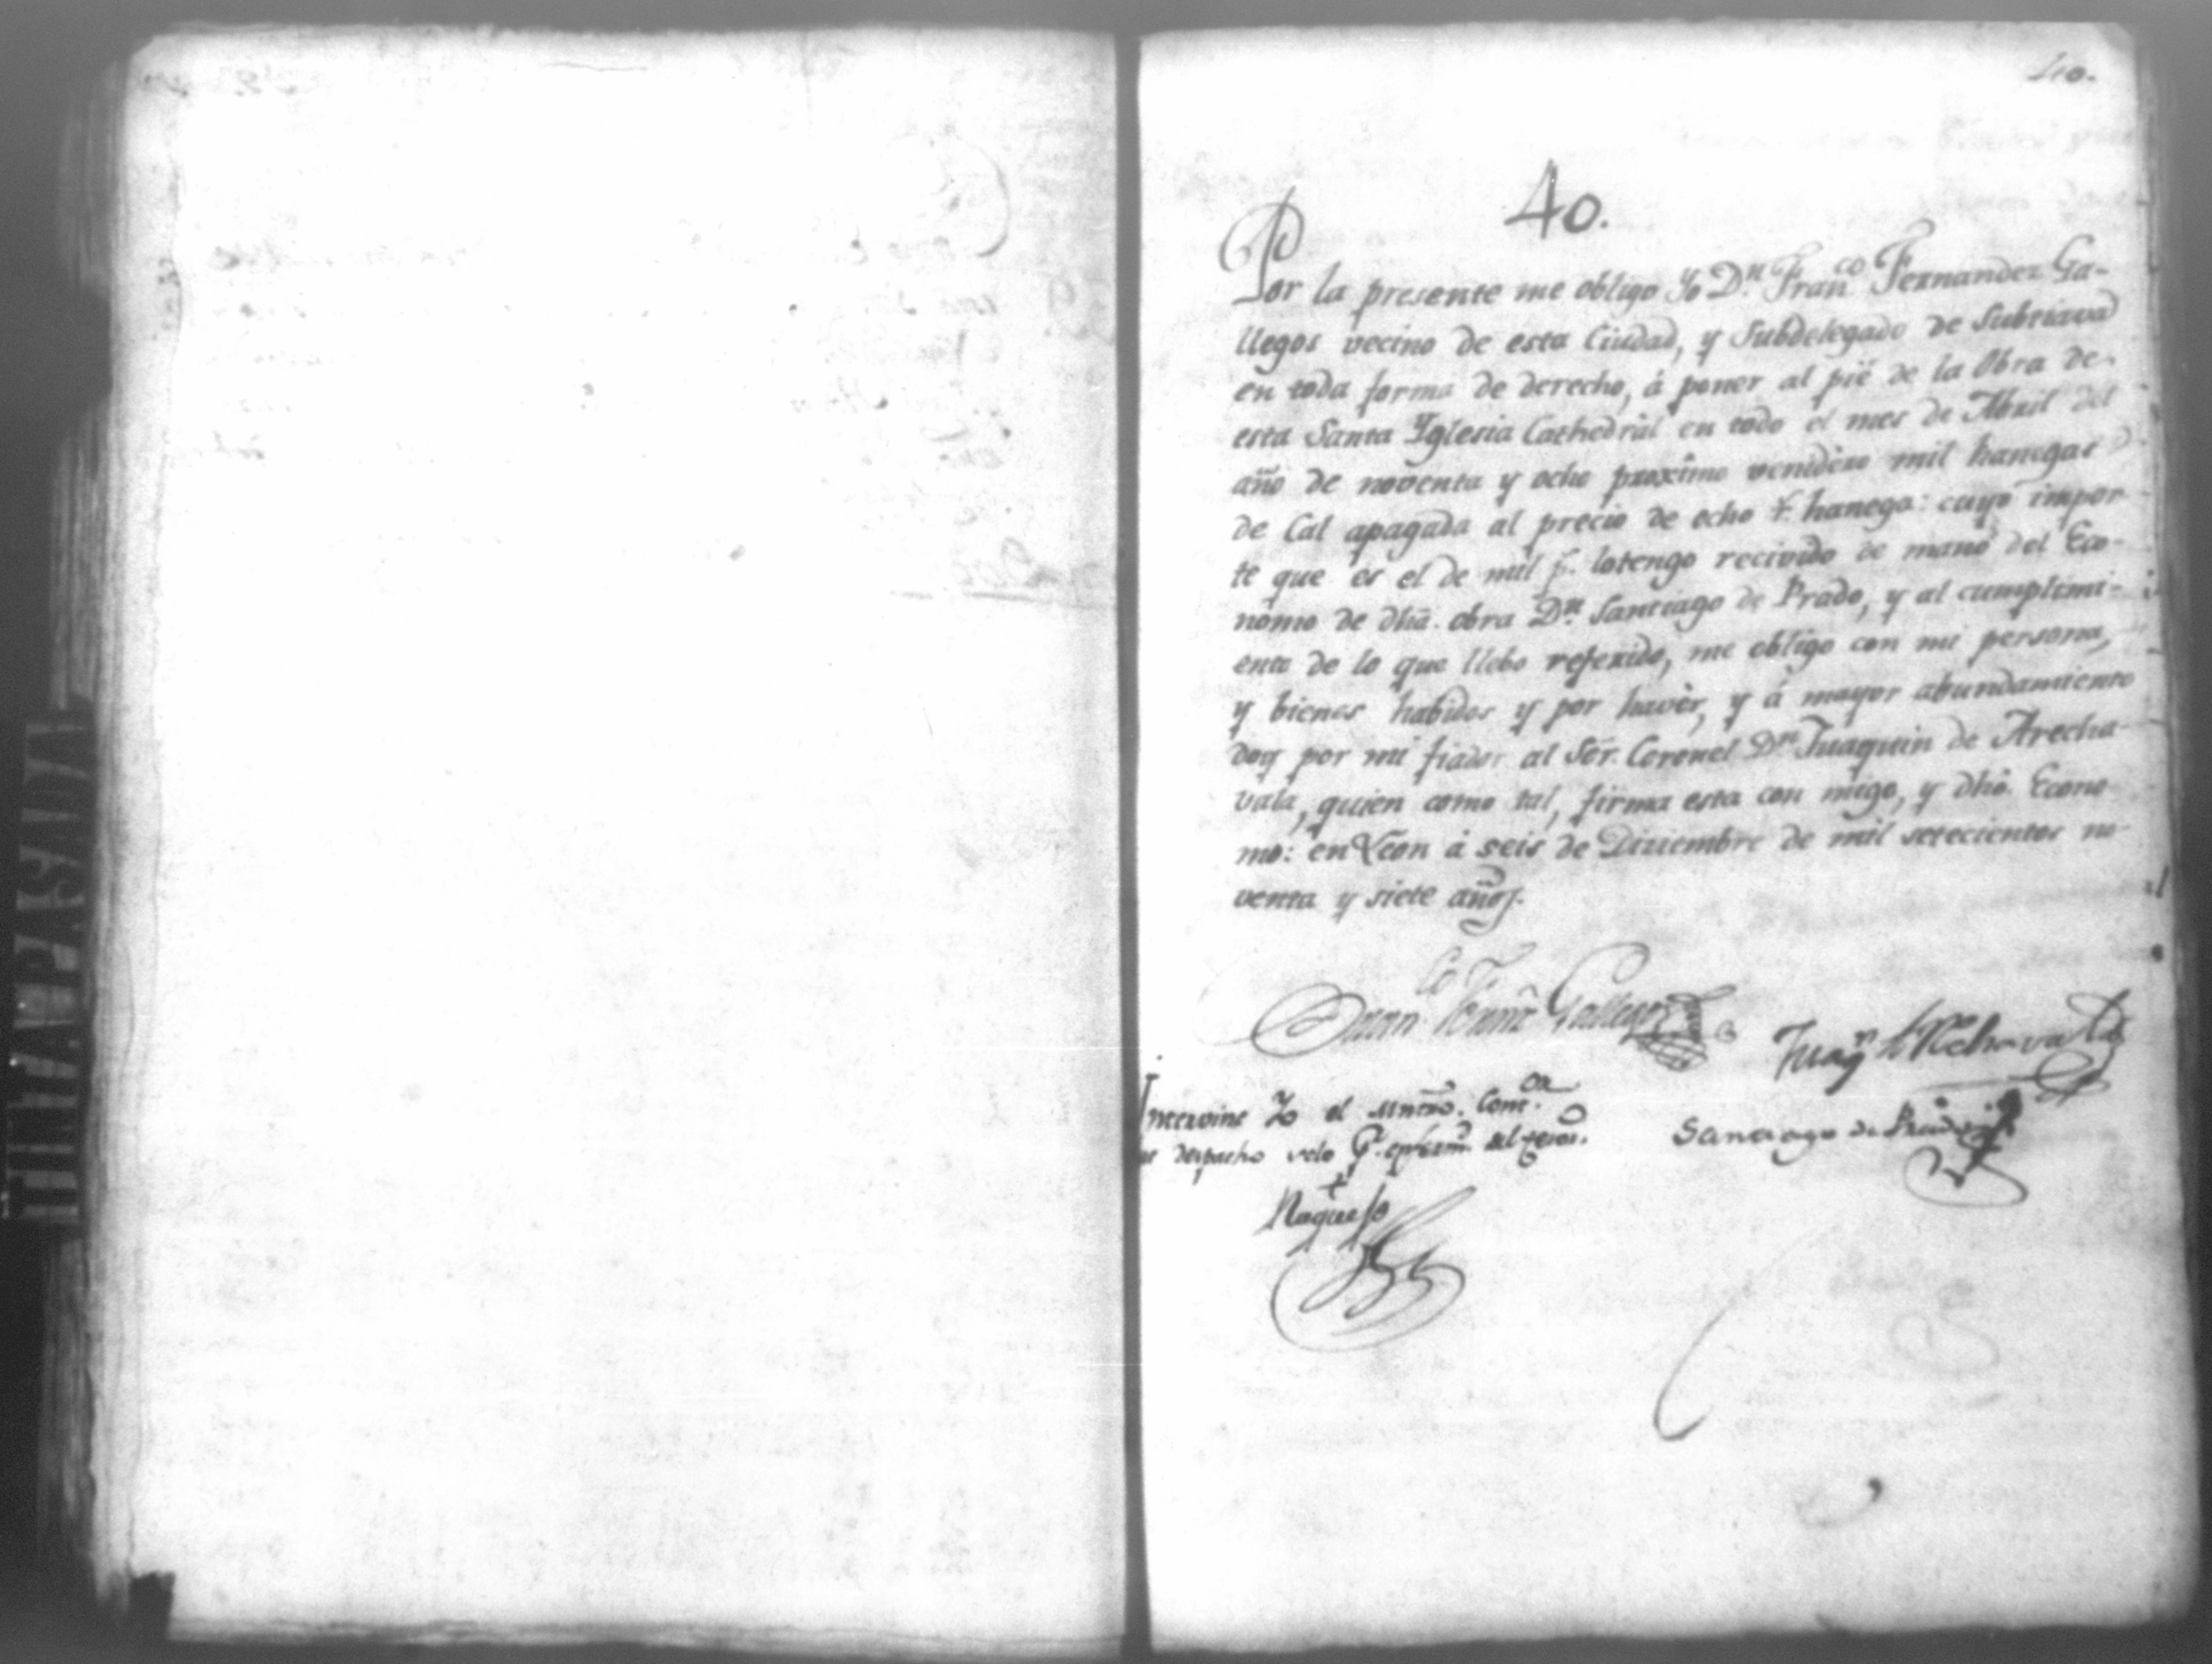 40.
40.
Por la presente me obligo Yo Dn. Franco. Fernandez Ga-
llegos vecino de esta Ciudad, y Subdelegado de Subtiava
en toda forma de derecho, á poner al pié de la Obra de
esta Santa Yglesia Cathedral en todo el mes de Abril del
año de noventa y ocho proximo venidero mil hanegas
de Cal apagada al precio de ocho rs. hanega: cuyo impor-
te que es el de mil ps. lotengo recivido de mano del Eco-
nomo de dha. obra Dn. Santiago de Prado, y al cumplimi-
ento de lo que llebo referido, me obligo con mi persona,
y bienes habidos y por haver, y á mayor abundamiento
doy por mi fiador al Sor. Coronel Dn. Juaquin de Arecha-
vala, quien como tal, firma esta con migo, y dho. Econo-
mo: en Leon á seis de Diziembre de mil setecientos no-
venta y siete años.
Franco. Gallegos
Juaqn. Arechavala
Intervine Yo el
de despacho solo
Santiago de Prado
ULTIMA PASADA